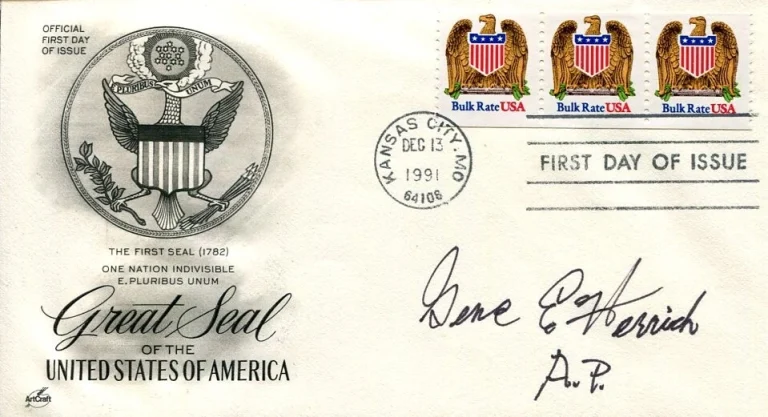 OFFICIAL
FIRST DAY
OF ISSUE
E PLURIBUS UNUM
THE FIRST SEAL (1782)
ONE NATION INDIVISIBLE
E. PLURIBUS UNUM
Great Seal
OF THE
UNITED STATES OF AMERICA
ArtCraft
Bulk Rate USA
Bulk Rate USA
Bulk Rate USA
KANSAS CITY, MO
DEC 13
1991
64108
FIRST DAY OF ISSUE
Gene E Herrick
A.P.